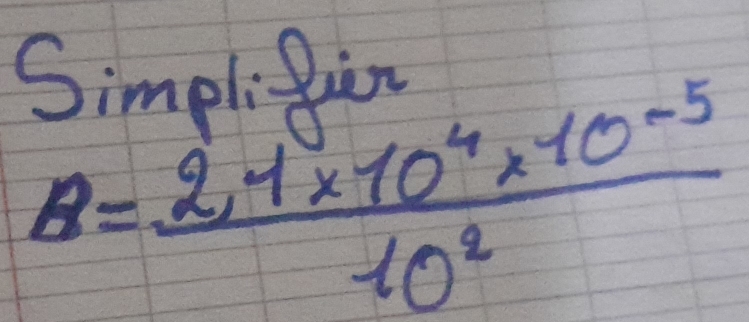 Simplifier
B = \frac{2,1 \times 10^4 \times 10^{-5}}{10^2}